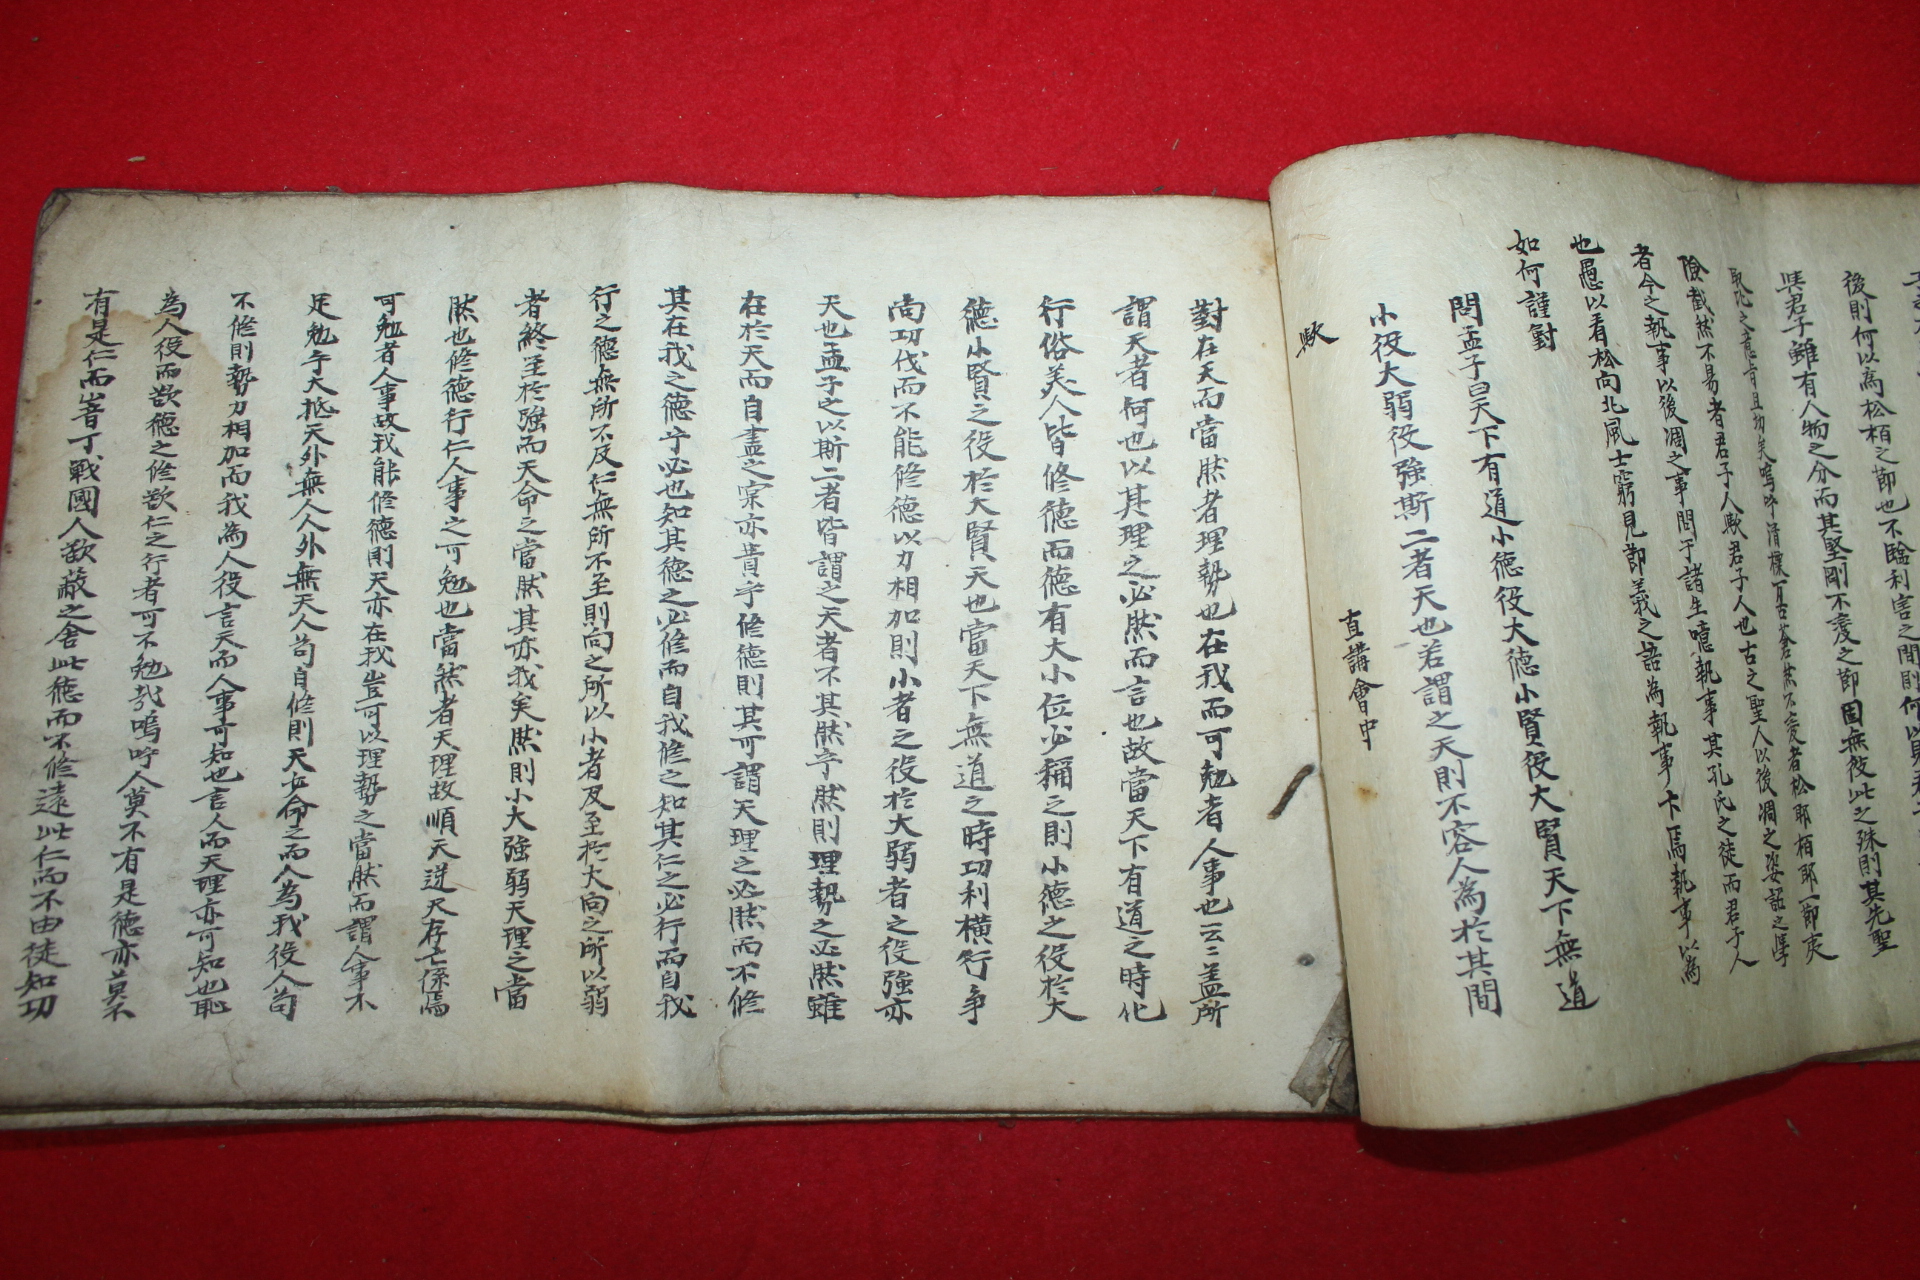 後則何以為松栢之節也不臨利害之間則何以
與君子雖有人物之分而其堅剛不變之節固無彼此之殊則其先聖
取比之意旨且切矣嗚呼清標百古蒼然不變者松耶栢耶一節夷
險截然不易者君子人歟君子人也古之聖人以後凋之姿詔之學
者今之執事以後凋之事問于諸生噫執事其孔氏之徒而君子人
也愚以看松向北風士窮見節義之語為執事卞焉執事以為
如何謹對
問孟子曰天下有道小德役大德小賢役大賢天下無道
小役大弱役強斯二者天也若謂之天則不容人為於其間
歟
直講會中
對在天而當然者理勢也在我而可勉者人事也云云盖所
謂天者何也以其理之必然而言也故當天下有道之時化
行俗美人皆修德而德有大小位必稱之則小德之役於大
德小賢之役於大賢天也當天下無道之時功利橫行爭
尚功伐而不能修德以力相加則小者之役於大弱者之役強亦
天也孟子之以斯二者皆謂之天者不其然乎然則理勢之必然雖
在於天而自盡之宗亦貴乎修德則其可謂天理之必然而不修
其在我之德乎必也知其德之必修而自我修之知其仁之必行而自我
行之德無所不及仁無所不至則向之所以小者及至於大向之所以弱
者終至於強而天命之當然其亦我矣然則小大強弱天理之當
然也修德行仁人事之可勉也當然者天理故順天逆天存亡係焉
可勉者人事故我能修德則天亦在我豈可以理勢之當然而謂人事不
足勉乎大抵天外無人人外無天人苟自修則天必命之而人為我役人苟
不修則勢力相加而我為人役言天而人事可知也言人而天理亦可知也恥
為人役而欲德之修欲仁之行者可不勉哉嗚呼人莫不有是德亦莫不
有是仁而㫺丁戰國人欲蔽之舍此德而不修遠此仁而不由徒知功